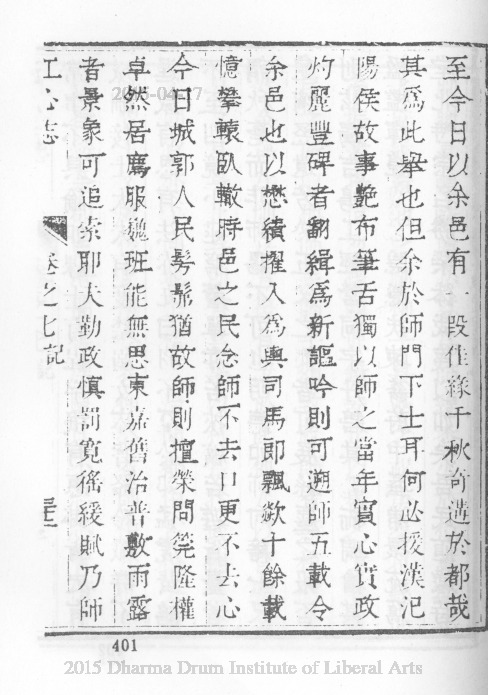 至今日以余邑有一段佳緣千秋奇遘於都哉
其爲此舉也但余於師門下士耳何必援漢汜
陽侯故事艷布筆舌獨以師之當年實心實政
灼麗豐碑者翻緝爲新謳吟則可遡師五載令
余邑也以懋績擢入爲輿司馬卽飄歘十餘載
憶攀轅臥轍時邑之民念師不去口更不去心
今日城郭人民髣髴猶故師則擅榮問筦隆權
卓然居廌服巍班能無思東嘉舊治普敷雨露
者景象可追索耶夫勤政慎罰寬徭緩賦乃師
江心志 卷之七記
2015-04-17
401
2015 Dharma Drum Institute of Liberal Arts